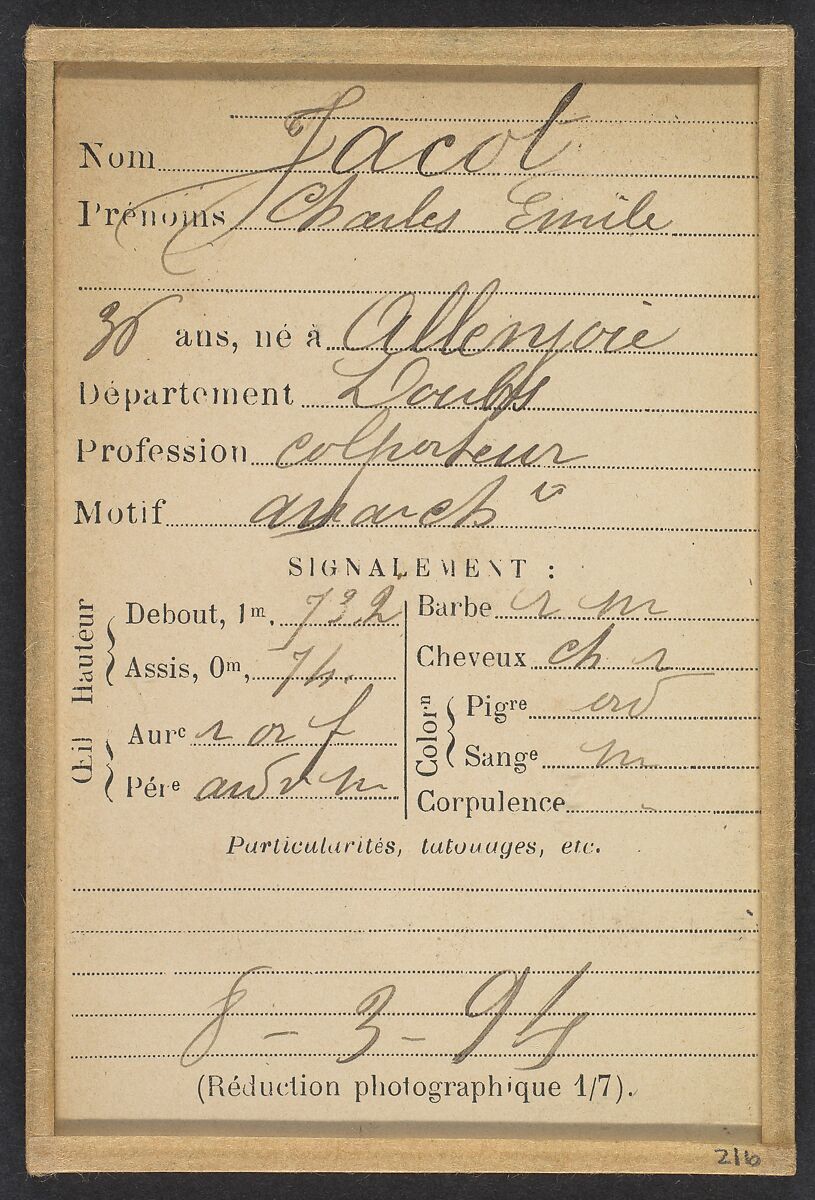 Nom Jacot
Prénoms Charles Emile
36 ans, né à Allenjoie
Département Doubs
Profession colporteur
Motif anarch
SIGNALEMENT :
Hauteur
Debout, 1m, 732
Assis, 0m, 74
Œil
Aure r or f
Pére m
Barbe r m
Cheveux ch r
Colorn
Pigre ord
Sange m
Corpulence -
Particularités, tatouages, etc.
8 - 3 - 94
(Réduction photographique 1/7).
216